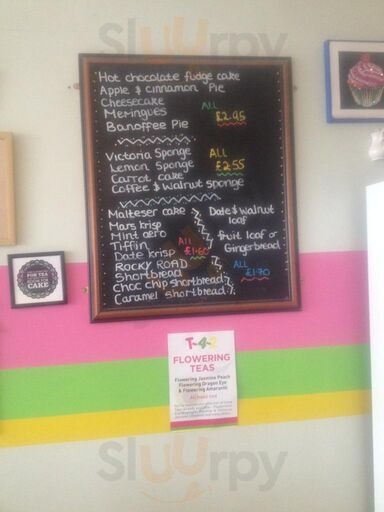 Sluurpy
Hot chocolate fudge cake
Apple & cinnamon Pie
Cheesecake
Meringues
Banoffee Pie
ALL
£2.95
Victoria Sponge
Lemon Sponge
Carrot cake
Coffee & Walnut sponge
ALL
£2.55
Malteser cake
Mars krisp
Mint aero
Tiffin
Date krisp
ROCKY ROAD
Shortbread
Choc chip shortbread
Caramel shortbread
All
£1.60
Date & walnut
loaf
fruit loaf or
Gingerbread
ALL
£1.70
FOR TEA
CAKE
T-4-2
FLOWERING
TEAS
Flowering Jasmine Peach
Flowering Dragon Eye
& Flowering Amaranth
Sluurpy